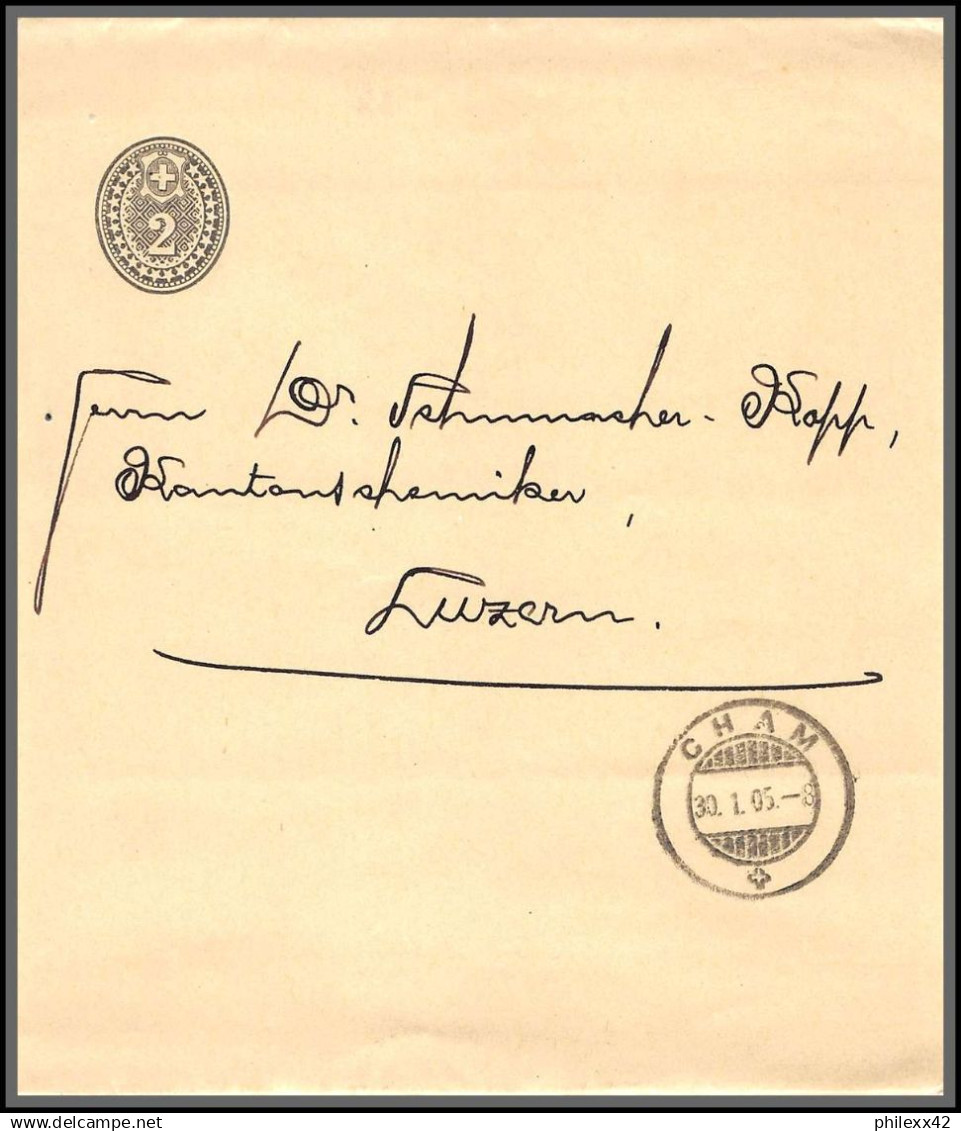 2
Herrn Dr. Schumacher-Kopp,
Kantonschemiker,
Luzern.
CHAM
30. 1. 05.-8
philexx42